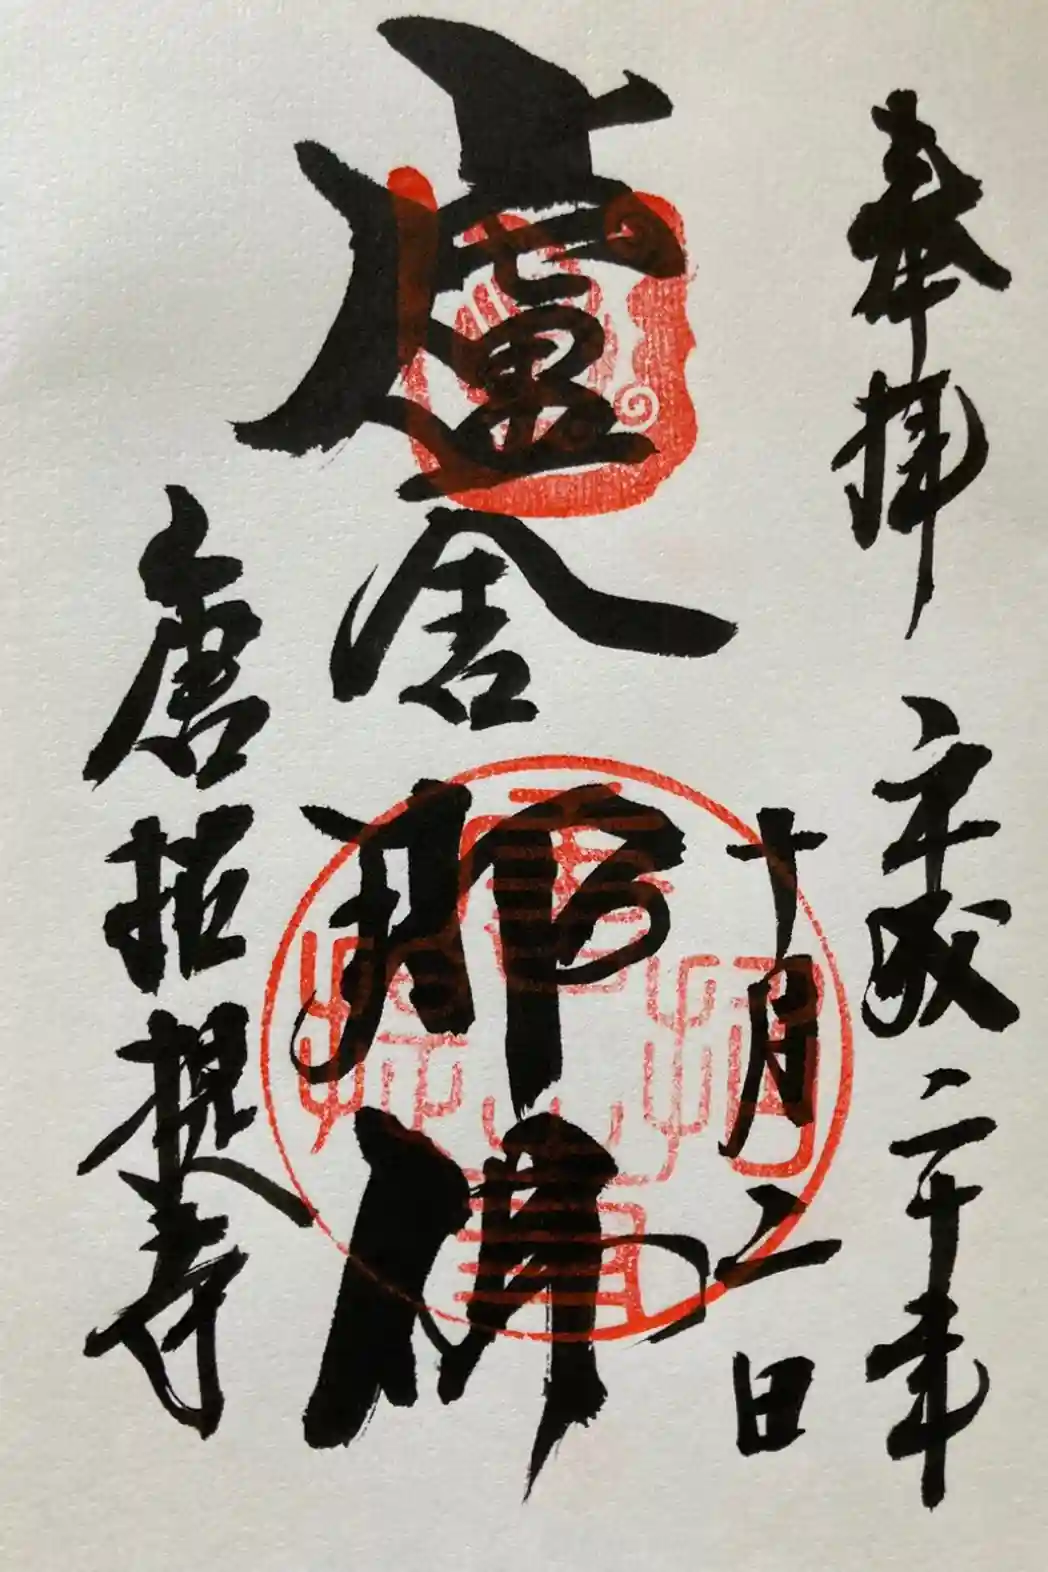 奉拝 平成二十年
十月二日
盧舎那佛
唐招提寺